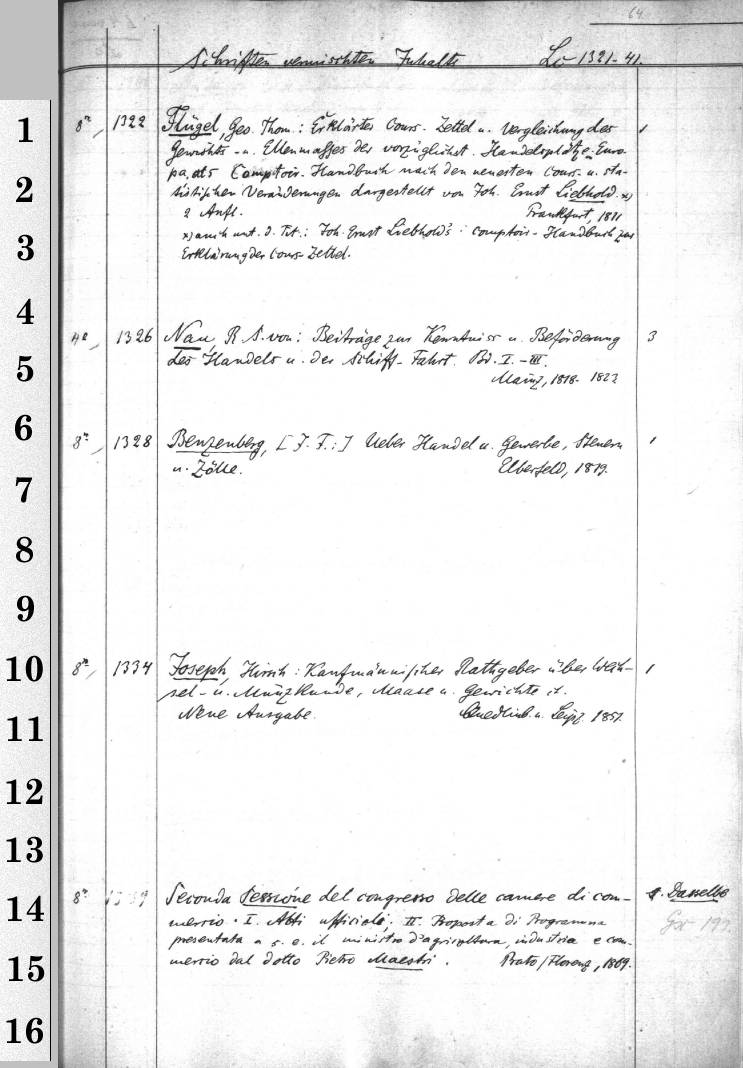 64.
Schriften vermischten Inhalts Lo 1321-41.
8º, 1322 Flügel, Geo. Thom.: Erklärter Cours-Zettel u. Vergleichung des 1
Gewichts- u. Ellenmasses der vorzüglichst. Handelsplätze Euro-
pa, als Comptoir-Handbuch nach den neuesten Cours- u. sta-
tistischen Veränderungen dargestellt von Joh. Ernst Liebhold. x)
2 Aufl. Frankfurt, 1811
x) auch unt. d. Tit.: Joh. Ernst Liebhold's Comptoir-Handbuch zur
Erklärung der Cours-Zettel.
4º, 1326 Nau, R. S. von: Beiträge zur Kenntniss u. Beförderung 3
des Handels u. der Schiff-Fahrt. Bd. I.-III.
Mainz, 1818-1822
8º, 1328 Benzenberg, [J. F.:] Ueber Handel u. Gewerbe, Steuern 1
u. Zölle. Elberfeld, 1819.
8º, 1334 Joseph, Hirsch: Kaufmännischer Rathgeber über Wech- 1
sel- u. Münzkunde, Maase u. Gewichte
Neue Ausgabe. Quedlinb. u. Leipz. 1851.
8º 1339 Seconda Sessióne del congresso delle camere di com- Dasselbe
mercio. I. Atti ufficiali. II. Proposta di Programma Gx
presentata a s. e. il ministro d'agricoltura, industria e com-
mercio dal dotto Pietro Maestri. Prato/Florenz, 1869.
1
2
3
4
5
6
7
8
9
10
11
12
13
14
15
16